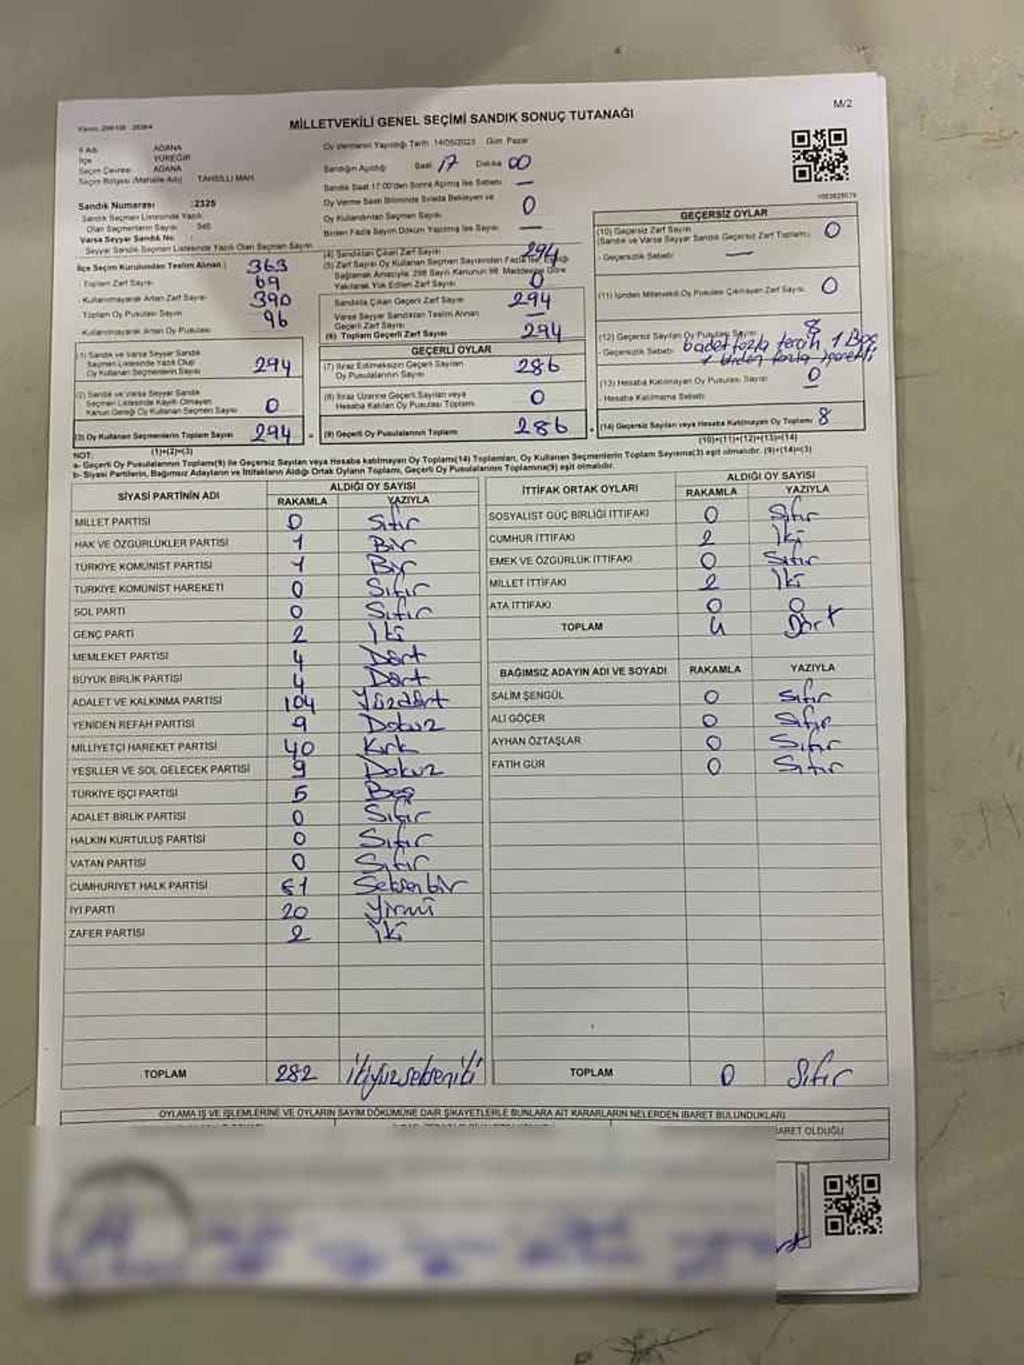 M/2
MİLLETVEKİLİ GENEL SEÇİMİ SANDIK SONUÇ TUTANAĞI
İl Adı: ADANA
İlçe YÜREĞİR
Seçim Çevresi: ADANA
Seçim Bölgesi (Mahalle Adı) TAHSİLLİ MAH.
Sandık Numarası :2325
Sandık Seçmen Listesinde Yazılı
Olan Seçmenlerin Sayısı
Varsa Seyyar Sandık No
Seyyar Sandık Seçmen Listesinde Yazılı Olan Seçmen Sayısı
Oy Vermenin Yapıldığı Tarih :14/05/2023 Gün Pazar
Sandığın Açıldığı Saat 17 Dakika 00
Sandık Saat 17:00'den Sonra Açılmış İse Sebebi —
Oy Verme Saati Bitiminde Sırada Bekleyen ve
Oy Kullandırılan Seçmen Sayısı 0
Birden Fazla Sayım Döküm Yapılmış İse Sayısı —
İlçe Seçim Kurulundan Teslim Alınan;
Toplam Zarf Sayısı 363
Kullanılmayarak Artan Zarf Sayısı 69
Toplam Oy Pusulası Sayısı 390
Kullanılmayarak Artan Oy Pusulası 96
(1) Sandık ve Varsa Seyyar Sandık
Seçmen Listesinde Yazılı Olup
Oy Kullanan Seçmenlerin Sayısı 294
(2) Sandık ve Varsa Seyyar Sandık
Seçmen Listesinde Kayıtlı Olmayan
Kanun Gereği Oy Kullanan Seçmen Sayısı 0
(3) Oy Kullanan Seçmenlerin Toplam Sayısı 294
(1)+(2)=(3)
(4) Sandıktan Çıkan Zarf Sayısı 294
(5) Zarf Sayısı Oy Kullanan Seçmen Sayısından Fazla İse, Eşitliği
Sağlamak Amacıyla; 298 Sayılı Kanunun 98. Maddesine Göre
Yakılarak Yok Edilen Zarf Sayısı 0
Sandıkta Çıkan Geçerli Zarf Sayısı 294
Varsa Seyyar Sandıktan Teslim Alınan
Geçerli Zarf Sayısı
(6) Toplam Geçerli Zarf Sayısı 294
GEÇERLİ OYLAR
(7) İtiraz Edilmeksizin Geçerli Sayılan
Oy Pusulalarının Sayısı 286
(8) İtiraz Üzerine Geçerli Sayılan veya
Hesaba Katılan Oy Pusulası Toplamı 0
(9) Geçerli Oy Pusulalarının Toplamı 286
GEÇERSİZ OYLAR
(10) Geçersiz Zarf Sayısı
(Sandık ve Varsa Seyyar Sandık Geçersiz Zarf Toplamı) 0
- Geçersizlik Sebebi: —
(11) İçinden Milletvekili Oy Pusulası Çıkmayan Zarf Sayısı 0
(12) Geçersiz Sayılan Oy Pusulası Sayısı 8
- Geçersizlik Sebebi: 6 adet fazla tercih 1 Boş
1 birden fazla işaretli
(13) Hesaba Katılmayan Oy Pusulası Sayısı 0
- Hesaba Katılmama Sebebi:
(14) Geçersiz Sayılan veya Hesaba Katılmayan Oy Toplamı 8
(10)+(11)+(12)+(13)=(14)
NOT:
a- Geçerli Oy Pusulalarının Toplamı(9) ile Geçersiz Sayılan veya Hesaba katılmayan Oy Toplamı(14) Toplamları, Oy Kullanan Seçmenlerin Toplam Sayısına(3) eşit olmalıdır. (9)+(14)=(3)
b- Siyasi Partilerin, Bağımsız Adayların ve İttifakların Aldığı Ortak Oyların Toplamı, Geçerli Oy Pusulalarının Toplamına(9) eşit olmalıdır.
SİYASİ PARTİNİN ADI ALDIĞI OY SAYISI
RAKAMLA YAZIYLA
MİLLET PARTİSİ 0 Sıfır
HAK VE ÖZGÜRLÜKLER PARTİSİ 1 Bir
TÜRKİYE KOMÜNİST PARTİSİ 1 Bir
TÜRKİYE KOMÜNİST HAREKETİ 0 Sıfır
SOL PARTİ 0 Sıfır
GENÇ PARTİ 2 İki
MEMLEKET PARTİSİ 4 Dört
BÜYÜK BİRLİK PARTİSİ 4 Dört
ADALET VE KALKINMA PARTİSİ 104 Yüzdört
YENİDEN REFAH PARTİSİ 9 Dokuz
MİLLİYETÇİ HAREKET PARTİSİ 40 Kırk
YEŞİLLER VE SOL GELECEK PARTİSİ 9 Dokuz
TÜRKİYE İŞÇİ PARTİSİ 5 Beş
ADALET BİRLİK PARTİSİ 0 Sıfır
HALKIN KURTULUŞ PARTİSİ 0 Sıfır
VATAN PARTİSİ 0 Sıfır
CUMHURİYET HALK PARTİSİ 81 Seksenbir
İYİ PARTİ 20 Yirmi
ZAFER PARTİSİ 2 İki
TOPLAM 282 ikiyüzsekseniki
İTTİFAK ORTAK OYLARI ALDIĞI OY SAYISI
RAKAMLA YAZIYLA
SOSYALİST GÜÇ BİRLİĞİ İTTİFAKI 0 Sıfır
CUMHUR İTTİFAKI 2 İki
EMEK VE ÖZGÜRLÜK İTTİFAKI 0 Sıfır
MİLLET İTTİFAKI 2 İki
ATA İTTİFAKI 0 0
TOPLAM 4 Dört
BAĞIMSIZ ADAYIN ADI VE SOYADI RAKAMLA YAZIYLA
SALİM ŞENGÜL 0 Sıfır
ALİ GÖÇER 0 Sıfır
AYHAN ÖZTAŞLAR 0 Sıfır
FATİH GÜR 0 Sıfır
TOPLAM 0 Sıfır
OYLAMA İŞ VE İŞLEMLERİNE VE OYLARIN SAYIM DÖKÜMÜNE DAİR ŞİKAYETLERLE BUNLARA AİT KARARLARIN NELERDEN İBARET BULUNDUKLARI